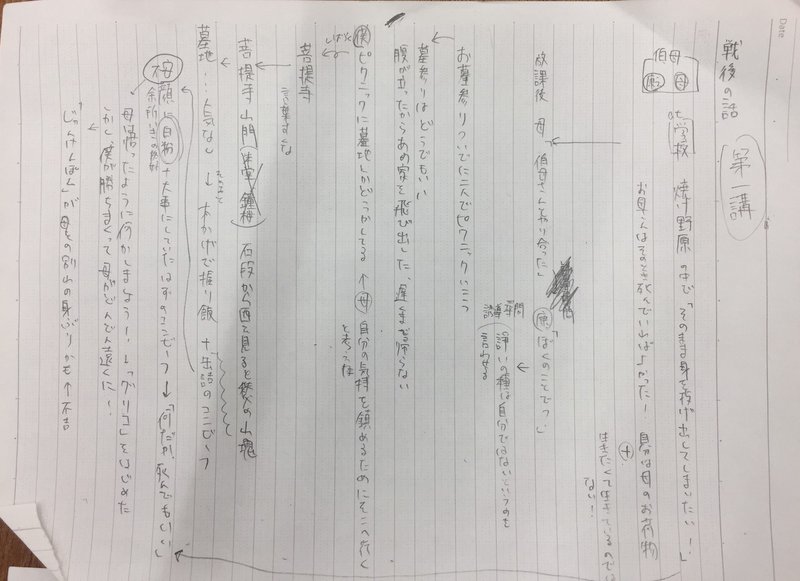 Date
戦後の話
第一講
伯母
僕 母
at 学校
焼け野原の中で「そのまま身を投げ出してしまいたい!」
お母さんはそのとき死んでいればよかった! 自分は母のお荷物
+
生きたくて生きているのでは
ない!
放課後 母「伯母さんとやり合った」
僕「ぼくのことでっ」
誘導尋問
諍いの種は自分ではないというのを
言わせる
お墓参りついでに二人でピクニックいこっ
墓参りはどうでもいい
腹が立ったからあの家を飛び出した、遅くまで帰らない
僕 ピクニックに墓地しかどうかしてる ↑ 母 自分の気持を鎮めるためにそこへ行く
と考えた
菩提寺
言葉すくな
菩提寺山門 石段から西を見ると鉄の山塊
墓地…人気なし ↓ 木かげで握り飯 + 缶詰のコンビーフ
母 顔に白粉 + 大事にしていたはずのコンビーフ → 「何だか、死んでもいい」
余所いきの格好
母は悟ったように何かしましょう!→「グリコ」をはじめた
しかし僕が勝ちまくって母がどんどん遠くに!
「じゃんけんぽん」が母との別れの身ぶりかも ↑ 不吉